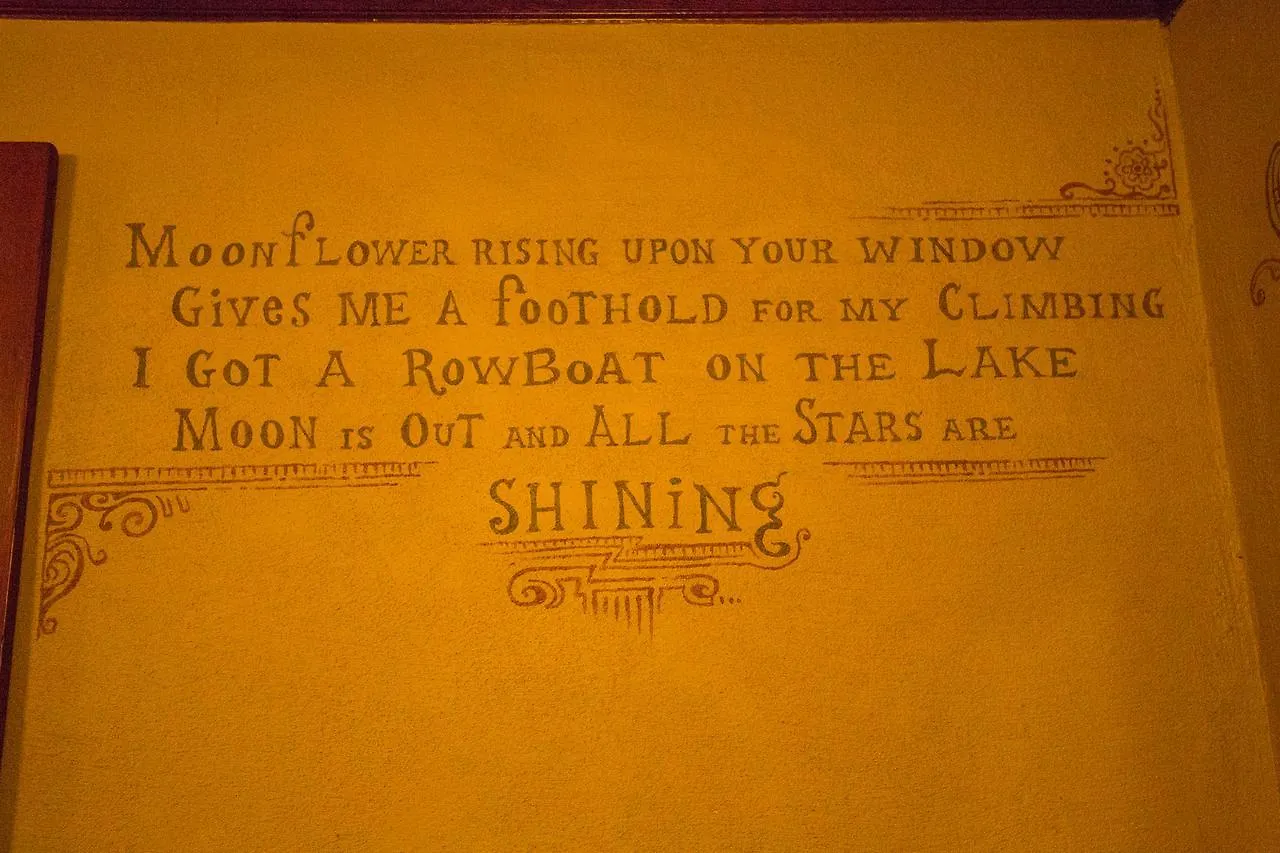 Moonflower rising upon your window
Gives me a foothold for my Climbing
I Got a RowBoat on the Lake
Moon is Out and All the Stars are
SHINiNg